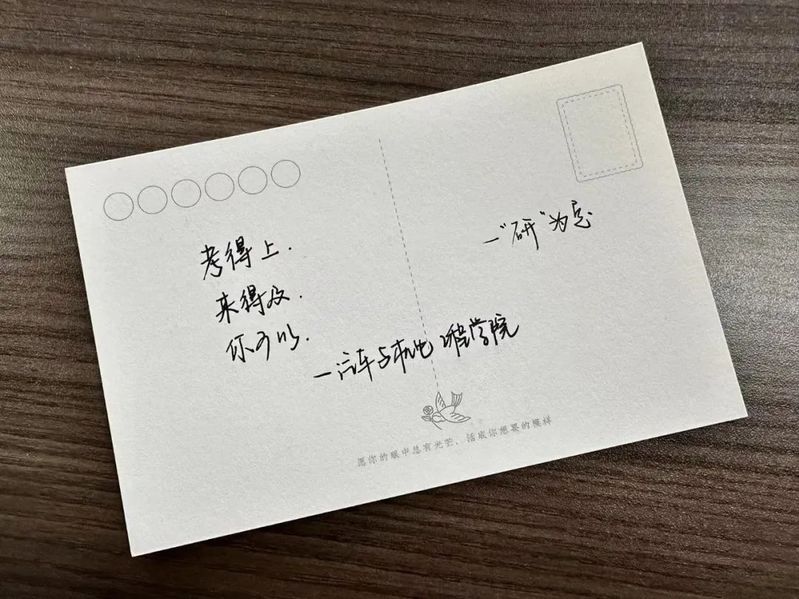 考得上.
来得及.
你可以.
一"研"为定
—汽车与机电工程学院
愿你的眼中总有光芒、活成你想要的模样